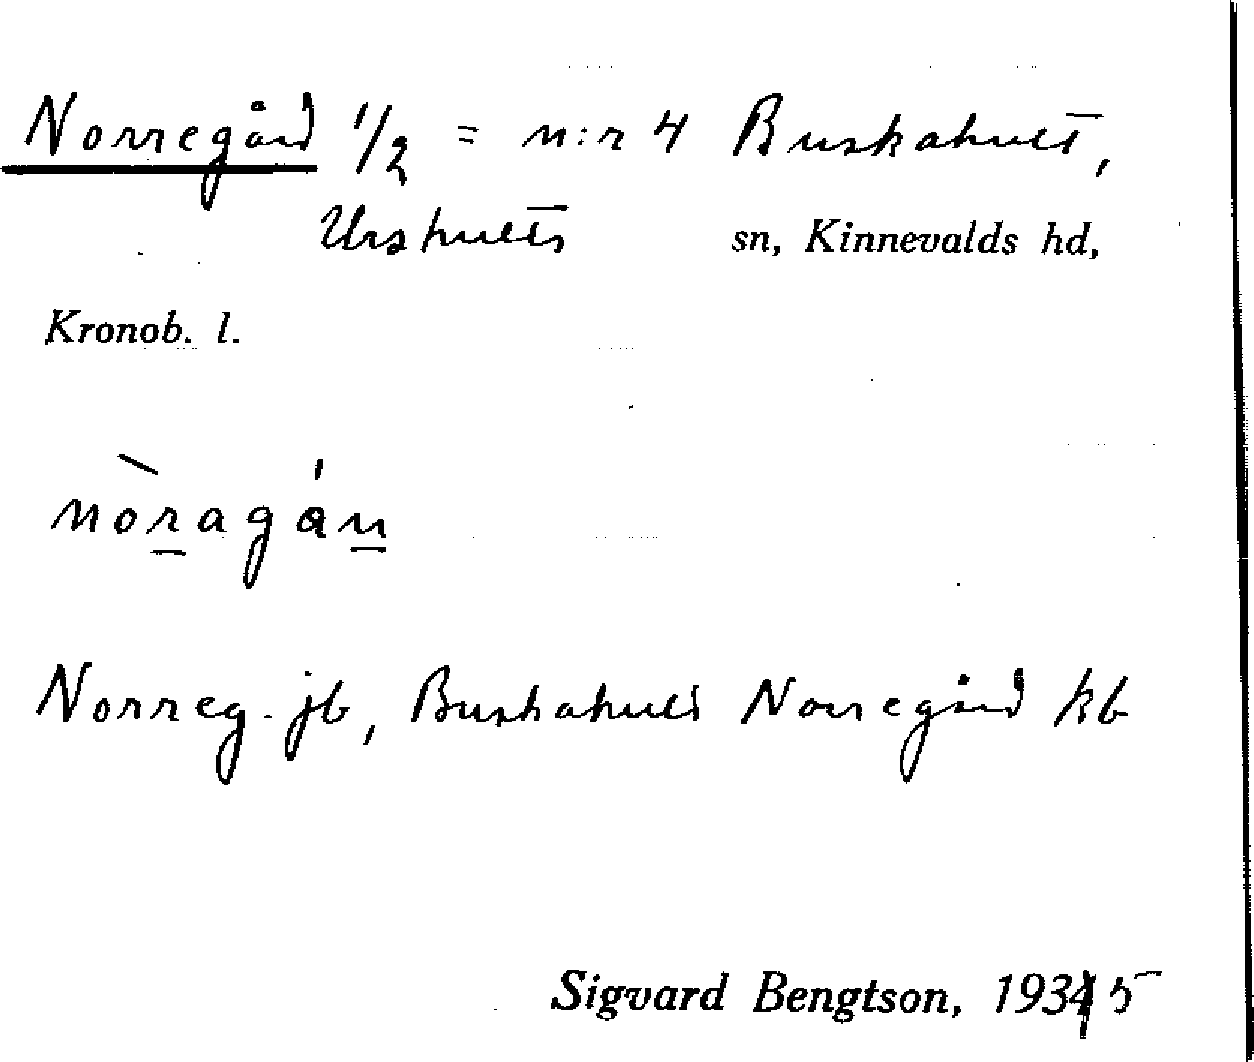 Norregård 1/2 = n:r 4 Buskahult,
Urshults sn, Kinnevalds hd,
Kronob. l.
nòragán
Norreg. jb, Buskahult Norregård kb
Sigvard Bengtson, 1935